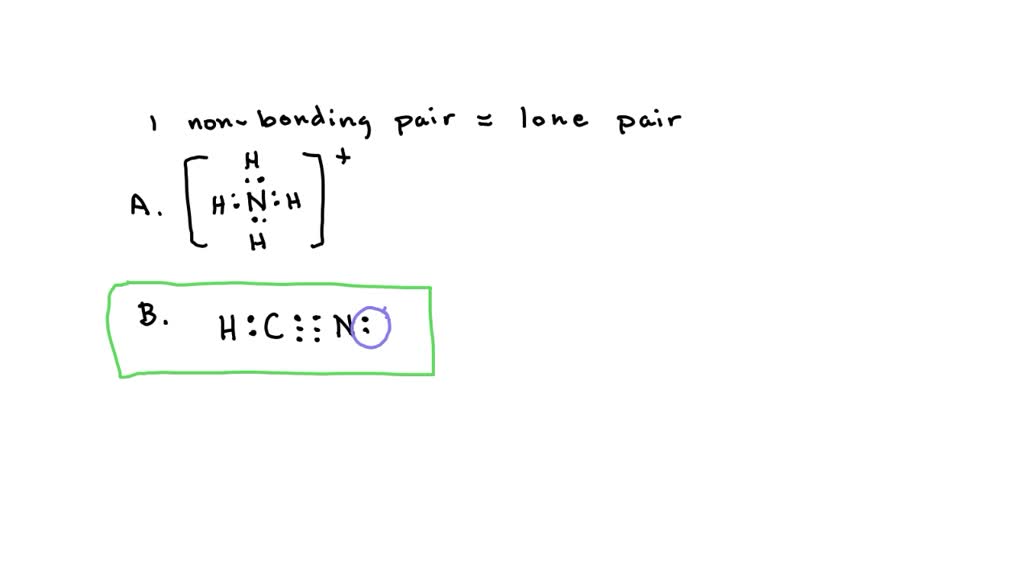 1 non-bonding pair = lone pair
A. [ H
H : N : H
H ] +
B. H : C ⋮⋮ N :